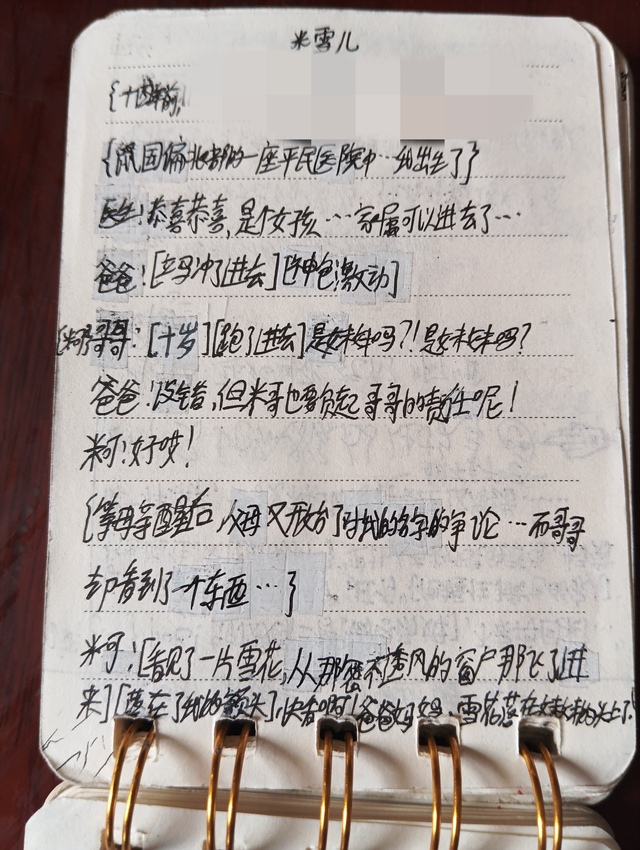 米雪儿
{十四年前,
{鼠国偏北部的一座平民医院中…我出生了}
医生:恭喜恭喜,是个女孩…家属可以进去了…
爸爸:[立马冲了进去][神色激动]
米柯哥哥:[十岁][跑了进去]是妹妹吗?!是妹妹吗?
爸爸:没错,但米哥也要负起哥哥的责任呢!
米柯:好哎!
{等母亲醒后,父母又展开了对我的名字的争论…而哥哥
却看到了一个东西…}
米柯:[看见了一片雪花,从那密不透风的窗户那飞了进
来][落在了我的额头]快看啊!爸爸妈妈,雪花落在妹妹的头上了